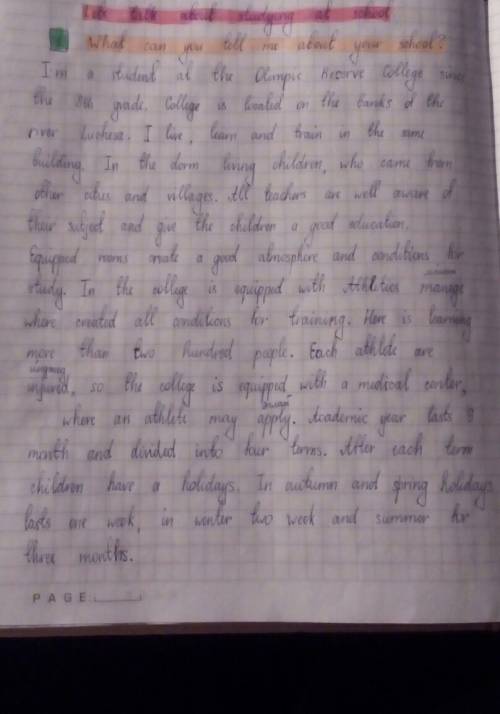 Let's talk about studying at school
What can you tell me about your school?
I'm a student at the Olimpic Reserve College since
the 8th grade. College is located on the banks of the
river Luchesa. I live, learn and train in the same
building. In the dorm living children, who came from
other cities and villages. All teachers are well aware of
their subject and give the children a good education.
Equipped rooms create a good atmosphere and conditions for
study. In the college is equipped with Athletics manege
where created all conditions for training. Here is learning
more than two hundred people. Each athlete are
injured, so the college is equipped with a medical center,
where an athlete may apply. Academic year lasts 9
month and divided into four terms. After each term
children have a holidays. In autumn and spring holidays
lasts one week, in winter two week and summer for
three months.
PAGE